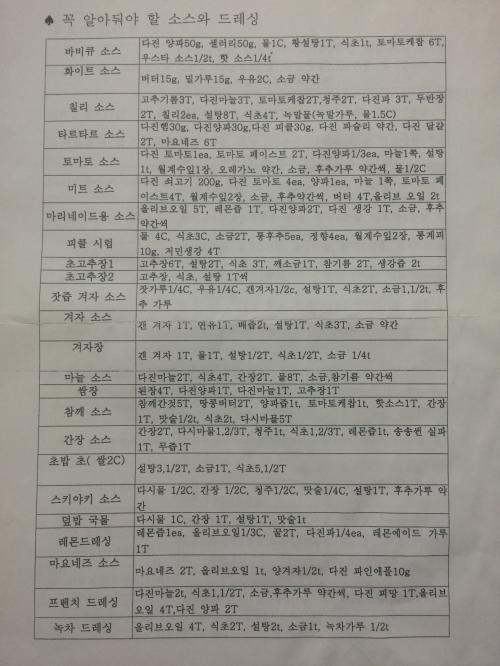 ♠ 꼭 알아둬야 할 소스와 드레싱
바비큐 소스 다진 양파50g, 셀러리50g, 물1C, 황설탕1T, 식초1t, 토마토케찹 6T,
우스타 소스1/2t, 핫 소스1/4t
화이트 소스 버터15g, 밀가루15g, 우유2C, 소금 약간
칠리 소스 고추기름3T, 다진마늘3T, 토마토케찹2T,청주2T, 다진파 3T, 두반장
2T, 칠리2ea, 설탕8T, 식초4T, 녹말물(녹말가루, 물1.5C)
타르타르 소스 다진햄30g, 다진양파30g,다진 피클30g, 다진 파슬리 약간, 다진 달걀
2T, 마요네즈 6T
토마토 소스 다진 토마토1ea, 토마토 페이스트 2T, 다진양파1/3ea, 마늘1쪽, 설탕
1t, 월계수잎1장, 오레가노 약간, 소금, 후추가루 약간씩, 물1/2C
미트 소스 다진 쇠고기 200g, 다진 토마토 4ea, 양파1ea, 마늘 1쪽, 토마토 페
이스트4T, 월계수잎2장, 소금, 후추약간씩, 버터 4T,올리브 오일 2t
마리네이드용 소스 올리브오일 5T, 레몬즙 1T, 다진양파2T, 다진 생강 1T, 소금, 후추
약간씩
피클 시럽 물 4C, 식초3C, 소금2T, 통후추5ea, 정향4ea, 월계수잎2장, 통계피
10g, 저민생강 4T
초고추장1 고추장6T, 설탕2T, 식초 3T, 깨소금1T, 참기름 2T, 생강즙 2t
초고추장2 고추장, 식초, 설탕 1T씩
잣즙 겨자 소스 잣가루1/4C, 우유1/4C, 갠겨자1/2c, 설탕1T, 식초2T, 소금1,1/2t, 후
추 가루
겨자 소스 갠 겨자 1T, 연유1T, 배즙2t, 설탕1T, 식초3T, 소금 약간
겨자장 갠 겨자 1T, 물1T, 설탕1/2T, 식초1/2T, 소금 1/4t
마늘 소스 다진마늘2T, 식초4T, 간장2T, 물8T, 소금,참기름 약간씩
쌈장 된장4T, 다진양파1T, 다진마늘1T, 고추장1T
참깨 소스 참깨간것5T, 땅콩버터2T, 양파즙1t, 토마토케찹1t, 핫소스1T, 간장
1T, 맛술1/2t, 식초2t, 다시마물5T
간장 소스 간장2T, 다시마물1,2/3T, 청주1t, 식초1,2/3T, 레몬즙1t, 송송썬 실파
1T, 무즙1T
초밥 초( 쌀2C) 설탕3,1/2T, 소금1T, 식초5,1/2T
스키야키 소스 다시물 1/2C, 간장 1/2C, 청주1/2C, 맛술1/4C, 설탕1T, 후추가루 약
간
덮밥 국물 다시물 1C, 간장 1T, 설탕1T, 맛술1t
레몬드레싱 레몬즙1ea, 올리브오일1/3C, 꿀2T, 다진파1/4ea, 레몬에이드 가루
1T
마요네즈 소스 마요네즈 2T, 올리브오일 1t, 양겨자1/2t, 다진 파인애플10g
프렌치 드레싱 다진마늘2t, 식초1,1/2T,소금,후추가루 약간씩, 다진 피망 1T,올리브
오일 4T,다진 양파 2T
녹차 드레싱 올리브오일 4T, 식초2T, 설탕2t, 소금1t, 녹차가루 1/2t